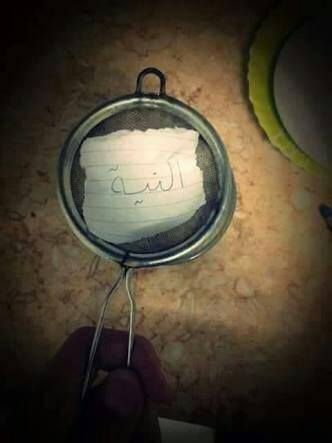 النية